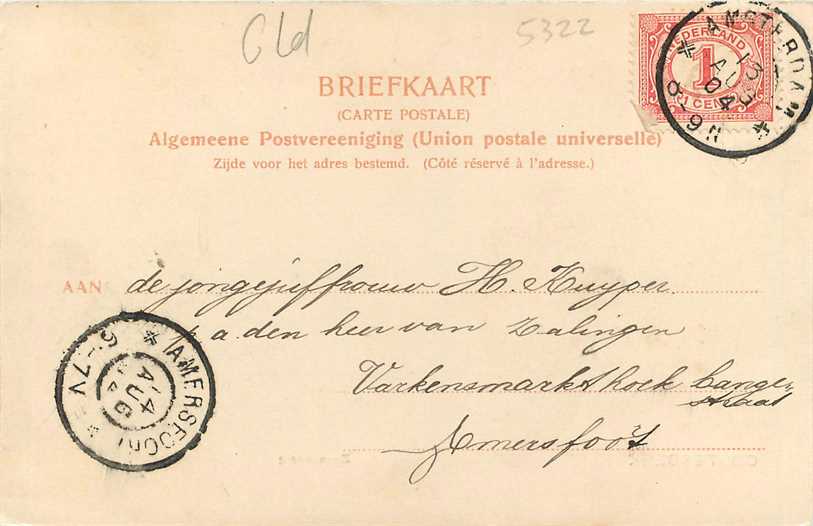 Gld
5322
AMSTERDAM
NEDERLAND
1
1 CENT
13 AUG 04
8-9N
BRIEFKAART
(CARTE POSTALE)
Algemeene Postvereeniging (Union postale universelle)
Zijde voor het adres bestemd. (Côté réservé à l'adresse.)
AAN de jongejuffrouw H. Kuyper
p/a den heer van Zalingen
Varkensmarkt hoek Lange-
straat
Amersfoort
AMERSFOORT
14 AUG 04
6-7V